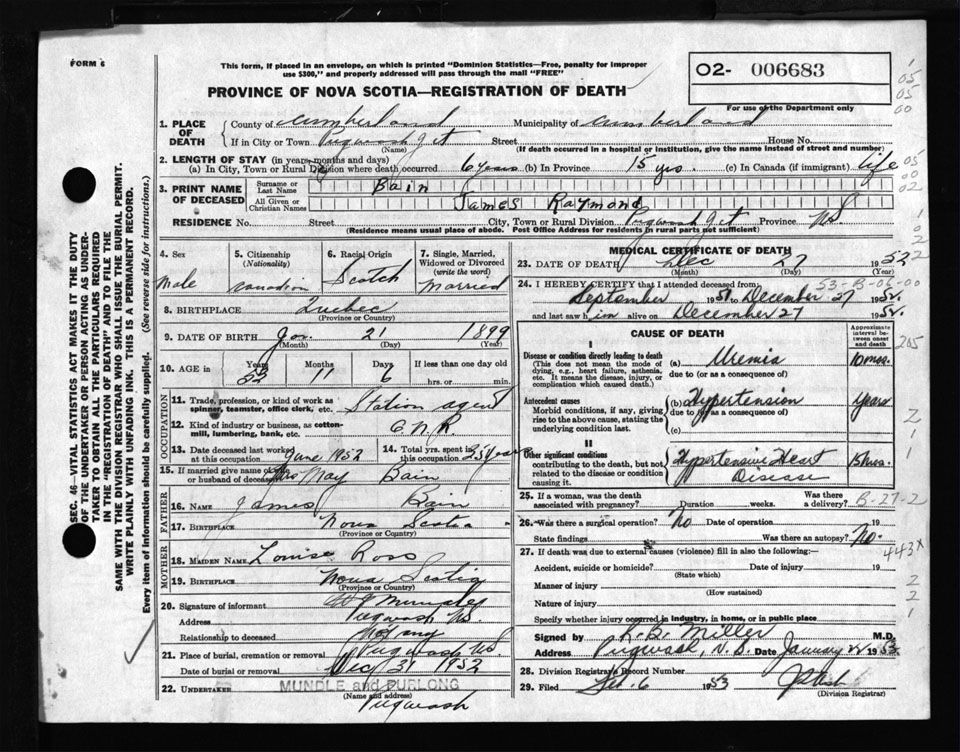 FORM 6
This form, if placed in an envelope, on which is printed "Dominion Statistics—Free, penalty for improper
use $300," and properly addressed will pass through the mail "FREE"
O2- 006683
PROVINCE OF NOVA SCOTIA—REGISTRATION OF DEATH
For use of the Department only
1. PLACE OF DEATH
County of Cumberland Municipality of Cumberland
If in City or Town Pugwash Jct Street House No.
(Name) (If death occurred in a hospital or institution, give the name instead of street and number)
2. LENGTH OF STAY (in years, months and days)
(a) In City, Town or Rural Division where death occurred 6 years (b) In Province 15 yrs. (c) In Canada (if immigrant) life
3. PRINT NAME OF DECEASED
Surname or Last Name Bain
All Given or Christian Names James Raymond
RESIDENCE No. Street City, Town or Rural Division Pugwash Jct Province N.S.
(Residence means usual place of abode. Post Office Address for residents in rural parts not sufficient)
4. Sex Male
5. Citizenship (Nationality) Canadian
6. Racial Origin Scotch
7. Single, Married, Widowed or Divorced (write the word) Married
8. BIRTHPLACE Quebec
(Province or Country)
9. DATE OF BIRTH Jan. 21 1899
(Month) (Day) (Year)
10. AGE in Years 53 Months 11 Days 6 If less than one day old
hrs. or min.
OCCUPATION
11. Trade, profession, or kind of work as spinner, teamster, office clerk, etc. Station agent
12. Kind of industry or business, as cotton-mill, lumbering, bank, etc. C.N.R.
13. Date deceased last worked at this occupation June 1952
14. Total yrs. spent in this occupation 35 years
15. If married give name of wife or husband of deceased Mrs May Bain
FATHER
16. NAME James Bain
17. BIRTHPLACE Nova Scotia
(Province or Country)
MOTHER
18. MAIDEN NAME Louise Ross
19. BIRTHPLACE Nova Scotia
(Province or Country)
20. Signature of informant
Address Pugwash N.S.
Relationship to deceased Not any
21. Place of burial, cremation or removal Pugwash N.S.
Date of burial or removal Dec 31 1952
22. UNDERTAKER MUNDLE and FURLONG
(Name and address)
Pugwash
MEDICAL CERTIFICATE OF DEATH
23. DATE OF DEATH Dec 27 1952
(Month) (Day) (Year)
53-B-06-00
24. I HEREBY CERTIFY that I attended deceased from
September 1951 to December 27 1952.
and last saw him alive on December 27 1952.
CAUSE OF DEATH
Approximate interval between onset and death
I
Disease or condition directly leading to death
(This does not mean the mode of dying, e.g., heart failure, asthenia, etc. It means the disease, injury, or complication which caused death.)
(a) Uremia 10 mos.
due to (or as a consequence of)
Antecedent causes
Morbid conditions, if any, giving rise to the above cause, stating the underlying condition last.
(b) Hypertension years
due to (or as a consequence of)
(c)
II
Other significant conditions
contributing to the death, but not related to the disease or condition causing it.
Hypertensive Heart Disease 15 mos.
25. If a woman, was the death associated with pregnancy? Duration weeks. Was there a delivery?
B-27-2
26. Was there a surgical operation? No Date of operation 19
State findings Was there an autopsy? No.
27. If death was due to external causes (violence) fill in also the following:—
443X
Accident, suicide or homicide? Date of injury 19
(State which)
Manner of injury
(How sustained)
Nature of injury
Specify whether injury occurred in industry, in home, or in public place
Signed by K. B. Miller M.D.
Address Pugwash, N.S. Date January 1953
28. Division Registrar's Record Number
29. Filed Feb. 6 1953
(Division Registrar)
SEC. 46 VITAL STATISTICS ACT MAKES IT THE DUTY
OF THE UNDERTAKER OR PERSON ACTING AS UNDER-
TAKER TO OBTAIN ALL THE PARTICULARS REQUIRED
IN THE "REGISTRATION OF DEATH" AND TO FILE THE
SAME WITH THE DIVISION REGISTRAR WHO SHALL ISSUE THE BURIAL PERMIT.
WRITE PLAINLY WITH UNFADING INK. THIS IS A PERMANENT RECORD.
Every item of information should be carefully supplied. (See reverse side for instructions.)